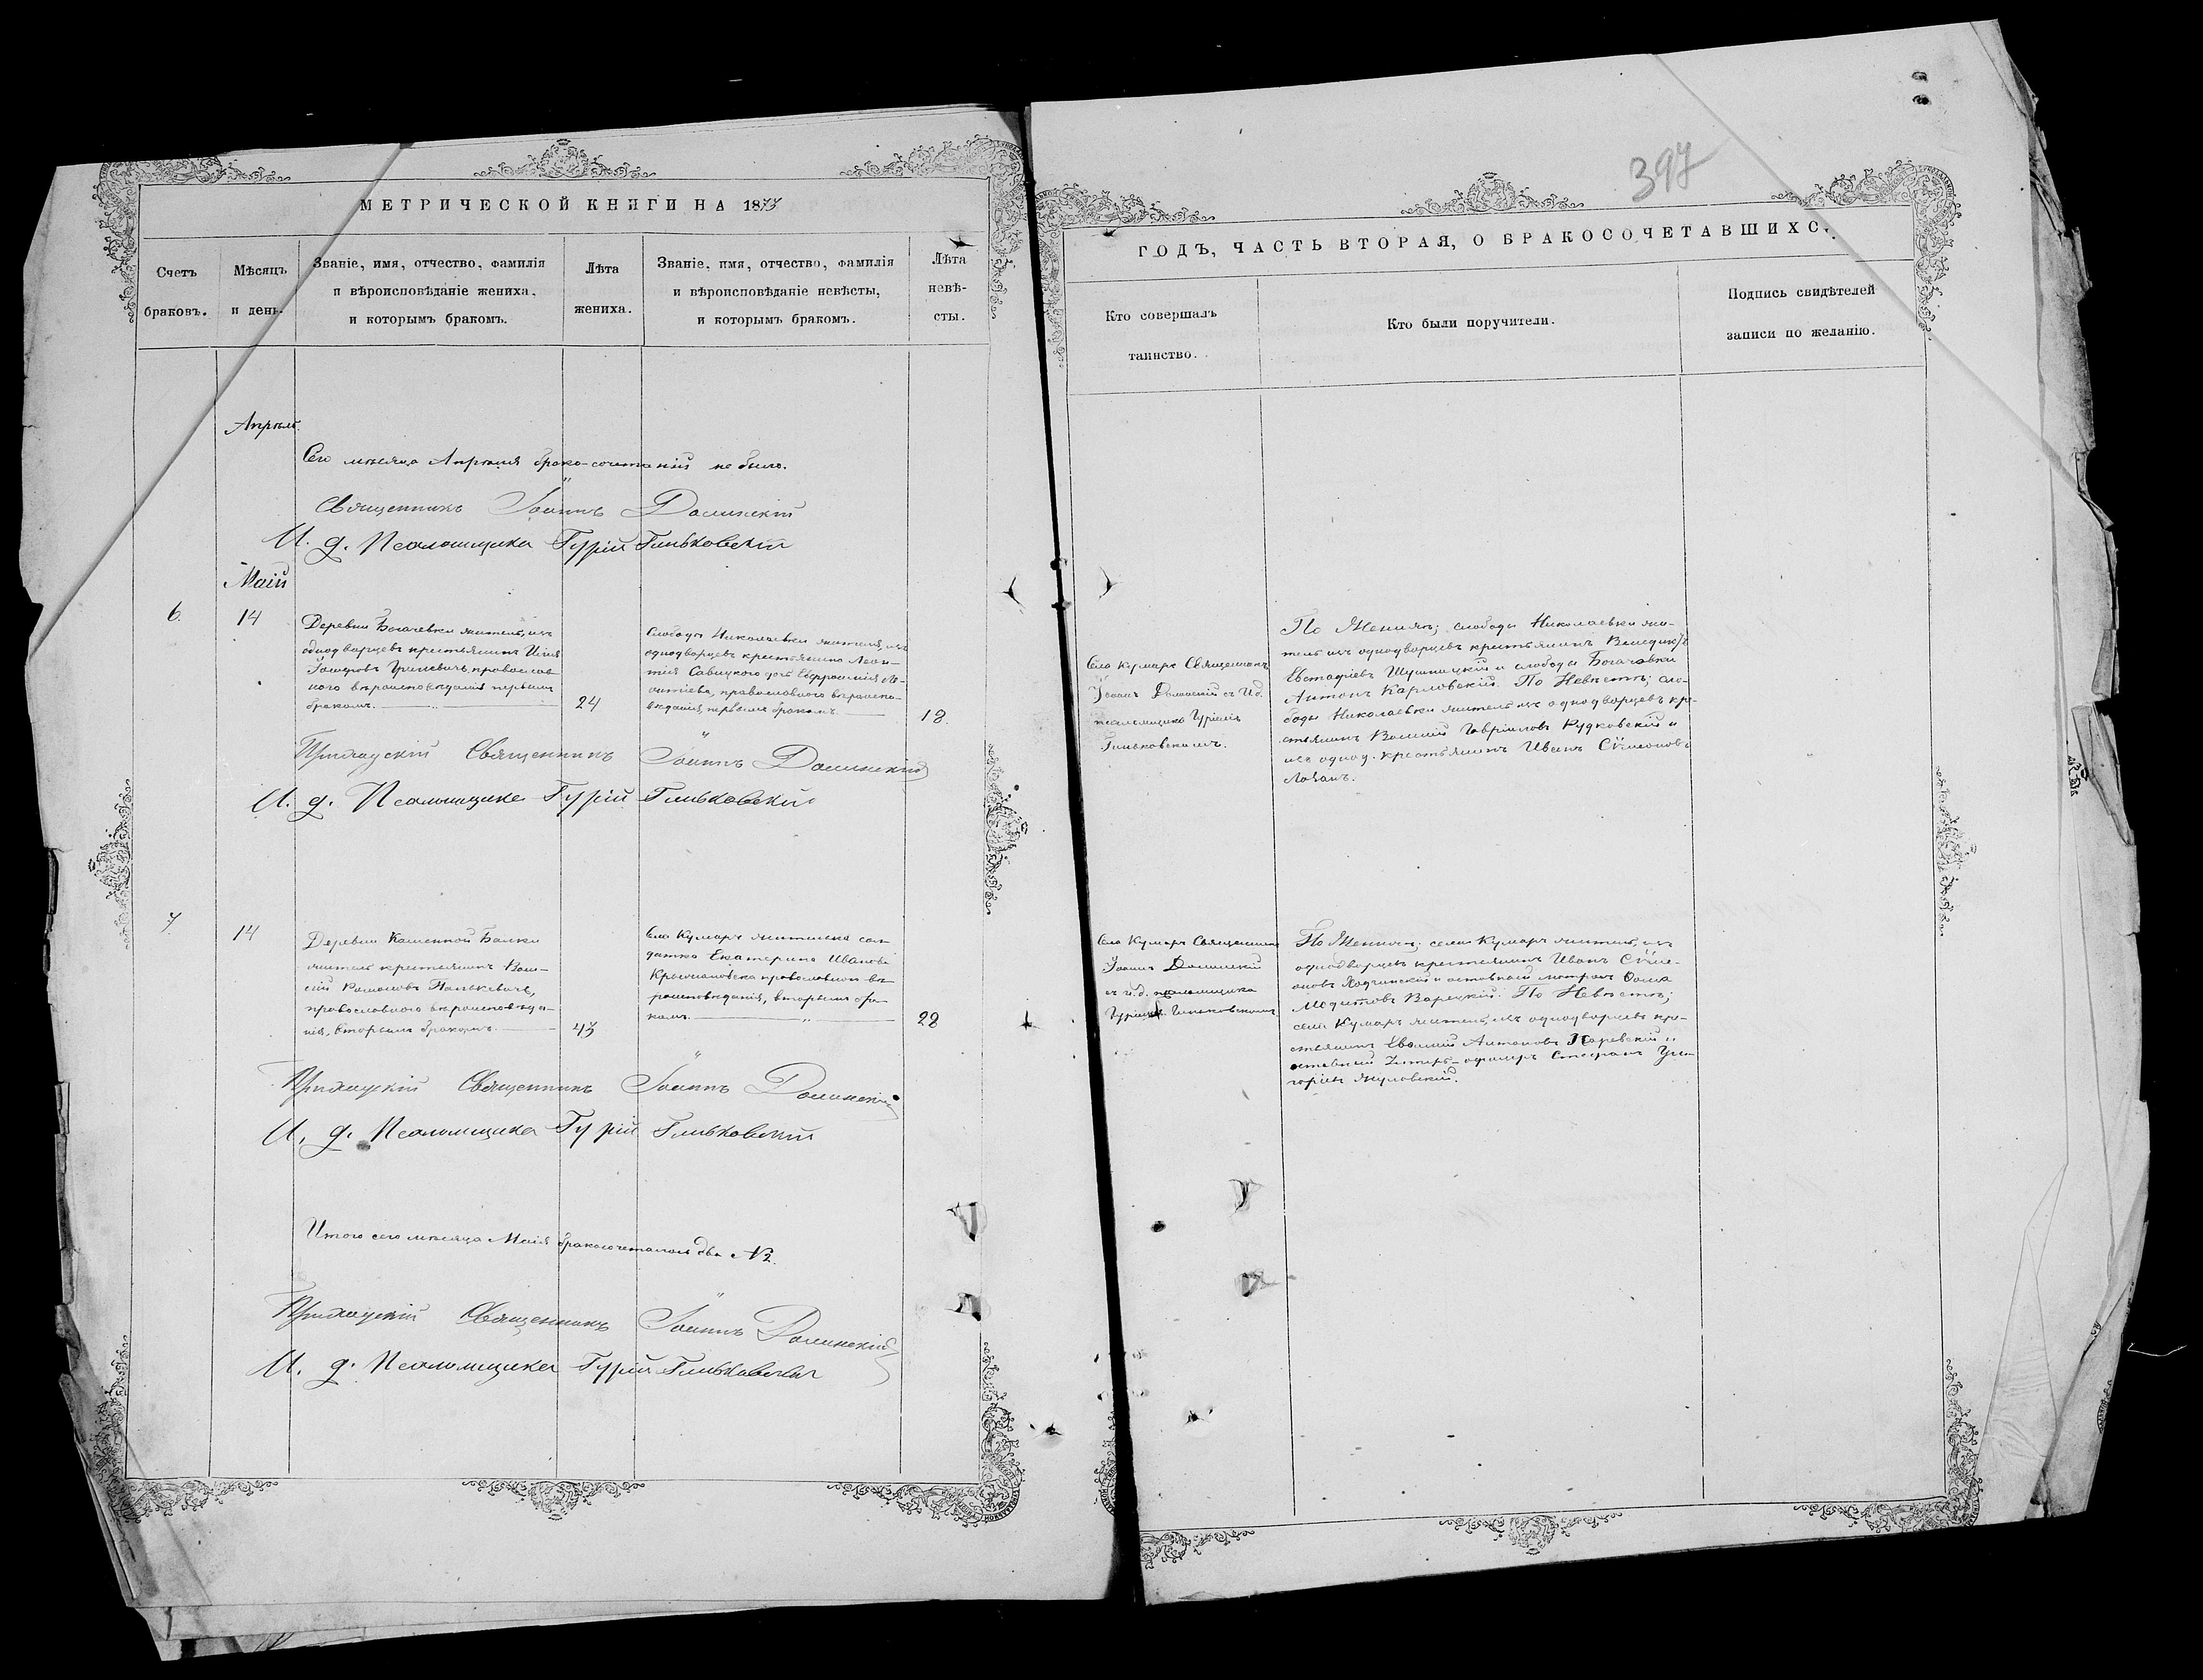 397
МЕТРИЧЕСКОЙ КНИГИ НА 1877
ГОДЪ, ЧАСТЬ ВТОРАЯ, О БРАКОСОЧЕТАВШИХС
Счетъ
браковъ.
Мѣсяцъ
и день.
Званіе, имя, отчество, фамилія
и вѣроисповѣданіе жениха,
и которымъ бракомъ.
Лѣта
жениха.
Званіе, имя, отчество, фамилія
и вѣроисповѣданіе невѣсты,
и которымъ бракомъ.
Лѣта
невѣ-
сты.
Кто совершалъ
таинство.
Кто были поручители.
Подпись свидѣтелей
записи по желанію.
Апрѣль
Сего мѣсяца Апрѣля брако-сочетаній не было.
Священникъ Іоаннъ Долинскій
И. д. Псаломщика Гурій Гиньковскій
Маій
6.
14
Деревни Богачевки житель, изъ
однодворцевъ крестьянинъ Илія
православ-
ного вѣроисповѣданія первымъ
бракомъ.
24
Слободы Николаевки жителя, изъ
однодворцевъ крестьянина Леон-
тія Савицкого дочь Евфросинія Ле-
онтіева, православного вѣроиспо-
вѣданія, первымъ бракомъ.
18.
Села Кумаръ Священникъ
Іоаннъ Долинскій съ И. д.
псаломщика Гуріемъ
Гиньковскимъ.
По Женихѣ; слободы Николаевки жи-
тель изъ однодворцевъ крестьянинъ Венедиктъ
Евстафіевъ и слободы Богачовки
Антонъ Карловскій. По Невѣстѣ; сло-
боды Николаевки житель изъ однодворцевъ кре-
стьянинъ Василій Гавріиловъ Рудковскій и
изъ однод. крестьянинъ Иванъ Сѵмеоновъ
Приходскій Священникъ Іоаннъ Долинскій
И. д. Псаломщика Гурій Гиньковскій
7.
14
Деревни Каменной Балки
житель крестьянинъ Васи-
лій Романовъ
православного вѣроисповѣда-
нія, вторымъ бракомъ.
43
Села Кумаръ жителька сол-
датка Екатерина Иванова
православного вѣ-
роисповѣданія, вторымъ бра-
комъ.
28
Села Кумаръ Священникъ
Іоаннъ Долинскій
съ и. д. псаломщика
Гуріемъ Гиньковскимъ
По Женихѣ; села Кумаръ житель, изъ
однодворцевъ крестьянинъ Иванъ Сѵме-
оновъ и Ѳома
По Невѣстѣ;
села Кумаръ житель, изъ однодворцевъ кре-
стьянинъ Антоновъ и
отставной Унтеръ-офицеръ Стефанъ Гри-
горіевъ
Приходскій Священникъ Іоаннъ Долинскій
И. д. Псаломщика Гурій Гиньковскій
Итого сего мѣсяца Маія бракосочеталось два № 2.
Приходскій Священникъ Іоаннъ Долинскій
И. д. Псаломщика Гурій Гиньковскій